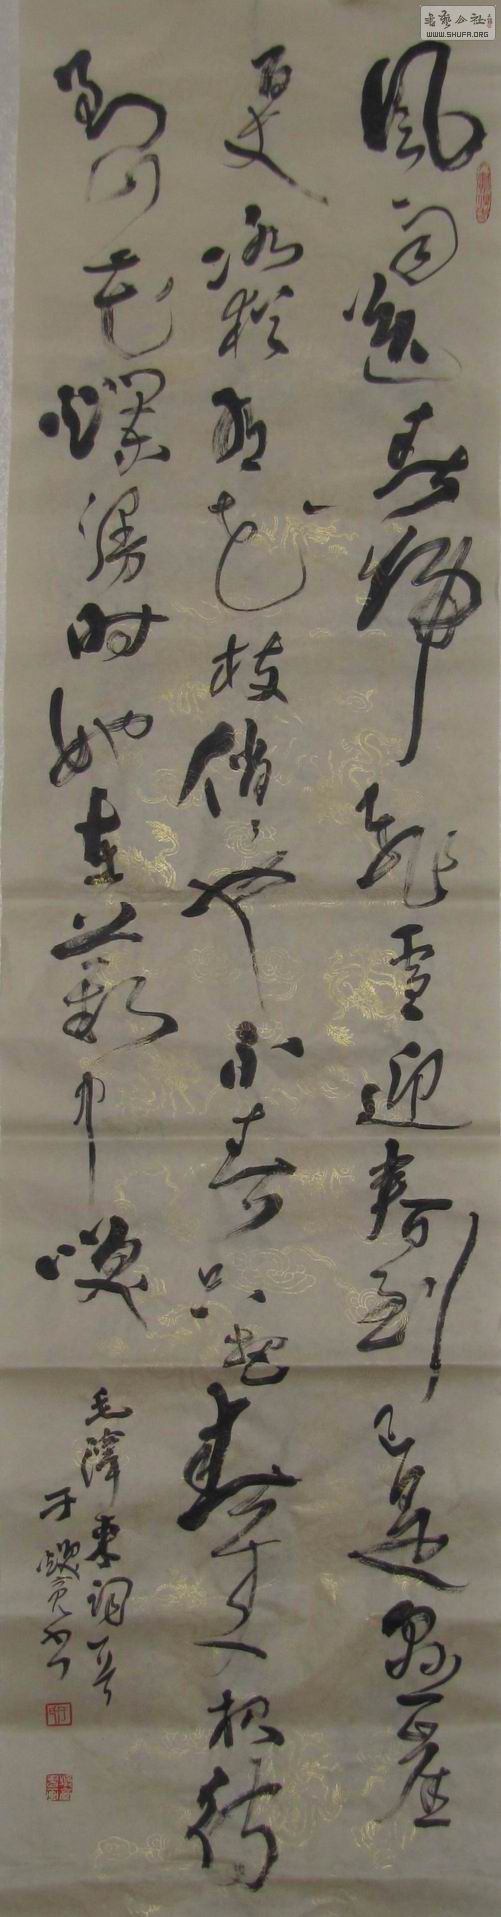 書藝公社
WWW.SHUFA.ORG
風雨送春归飛雪迎春到已是悬崖
百丈冰猶有花枝俏俏也不争春只把春来报待
到山花爛漫时她在丛中笑
毛澤東词一首